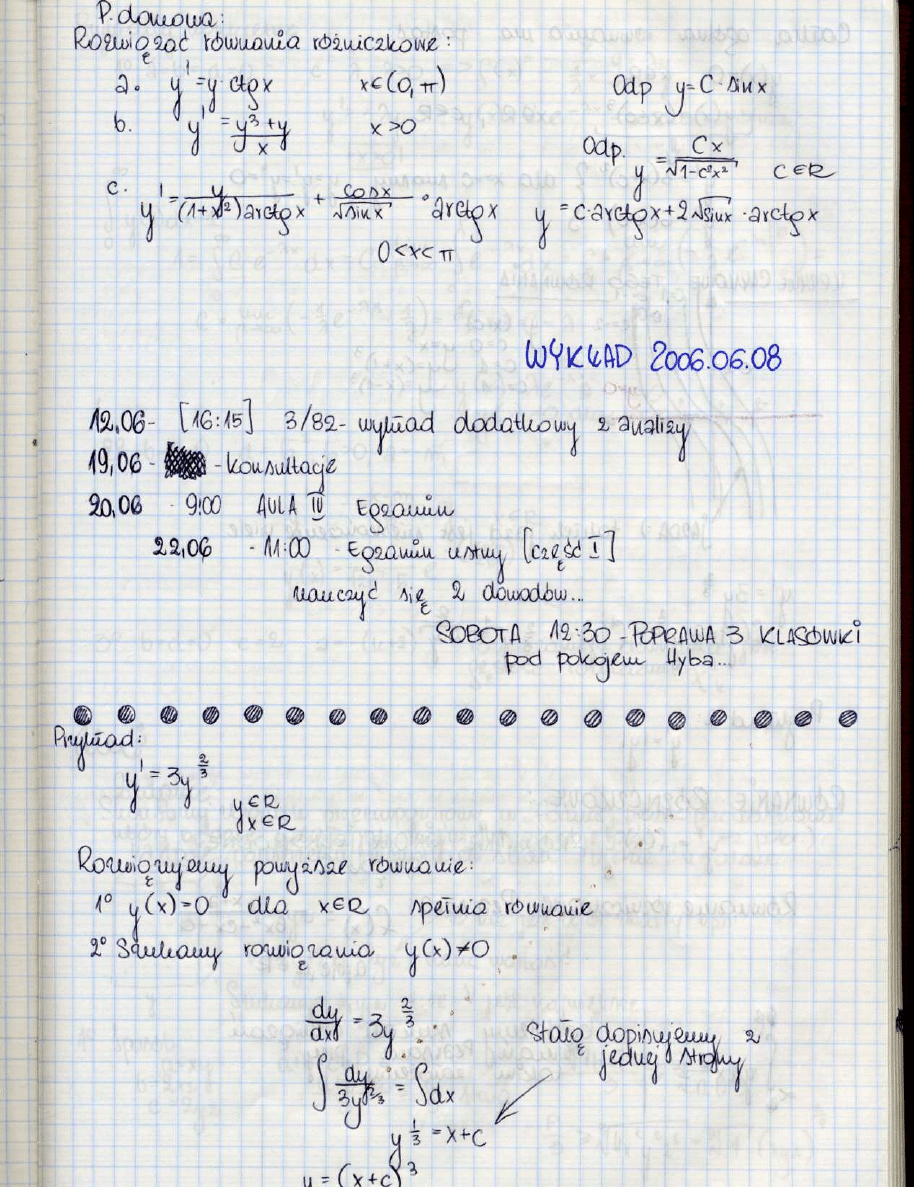 P. domowa:
Rozwiązać równania różniczkowe:
a. y' = y ctgx x∈(0,π) Odp y=C·sinx
b. y' = (y³+y)/x x>0 Odp. y = Cx/√(1-c²x²) C∈R
c. y' = y/((1+x²)arctgx) + cosx/√sinx · arctgx y = c·arctgx+2√sinx · arctgx
0<x<π
WYKŁAD 2006.06.08
12,06- [16:15] 3/82- wykład dodatkowy z analizy
19,06 - - konsultacje
20,06 - 9:00 AULA IV Egzamin
22,06 - 11:00 - Egzamin ustny [część I]
nauczyć się 2 dowodów...
SOBOTA 12:30 - POPRAWA 3 KLASÓWKI
pod pokojem Hyba...
Przykład:
y' = 3y^(2/3)
y∈R
x∈R
Rozwiązujemy powyższe równanie:
1° y(x)=0 dla x∈R spełnia równanie
2° Szukamy rozwiązania y(x)≠0
dy/dx = 3y^(2/3)
Stałą dopisujemy z
jednej strony
∫ dy/3y^(2/3) = ∫dx
y^(1/3) = x+c
y = (x+c)³